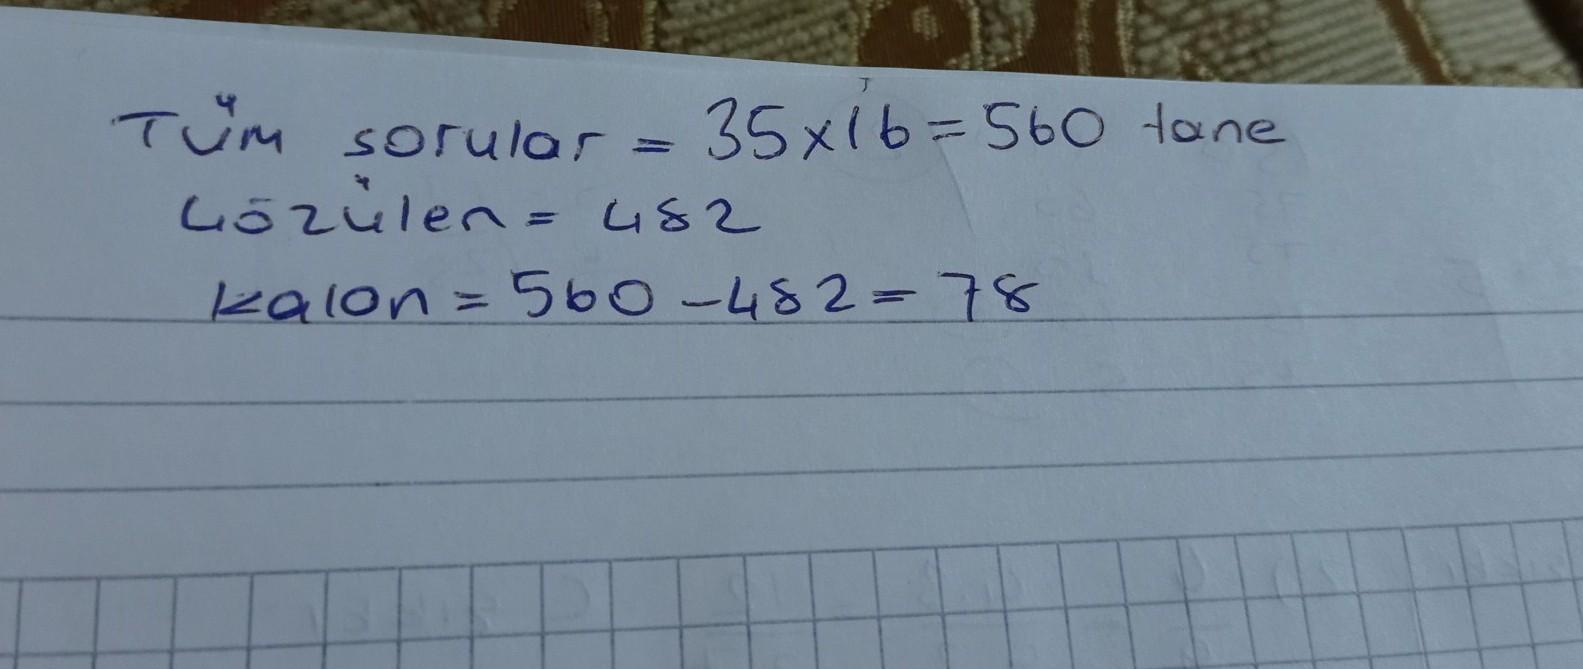 Tüm sorular = 35x16=560 tane
Çözülen = 482
kalan = 560 -482 = 78